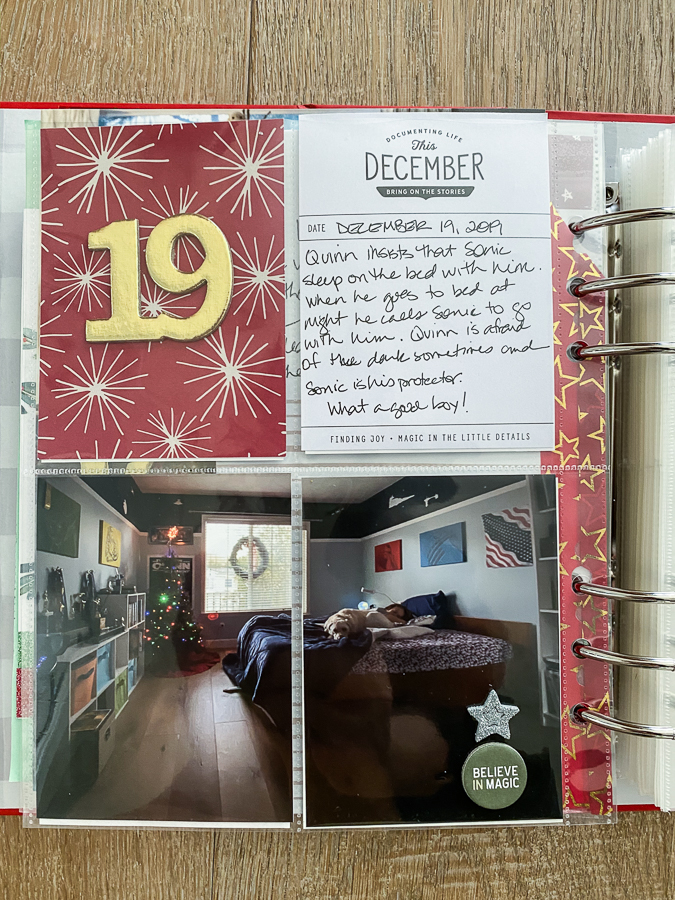 19
DOCUMENTING LIFE
This
DECEMBER
BRING ON THE STORIES
DATE DECEMBER 19, 2019
Quinn insists that Sonic
sleep on the bed with him.
When he goes to bed at
night he calls Sonic to go
with him. Quinn is afraid
of the dark sometimes and
Sonic is his protector.
What a good boy!
FINDING JOY • MAGIC IN THE LITTLE DETAILS
BELIEVE
IN MAGIC